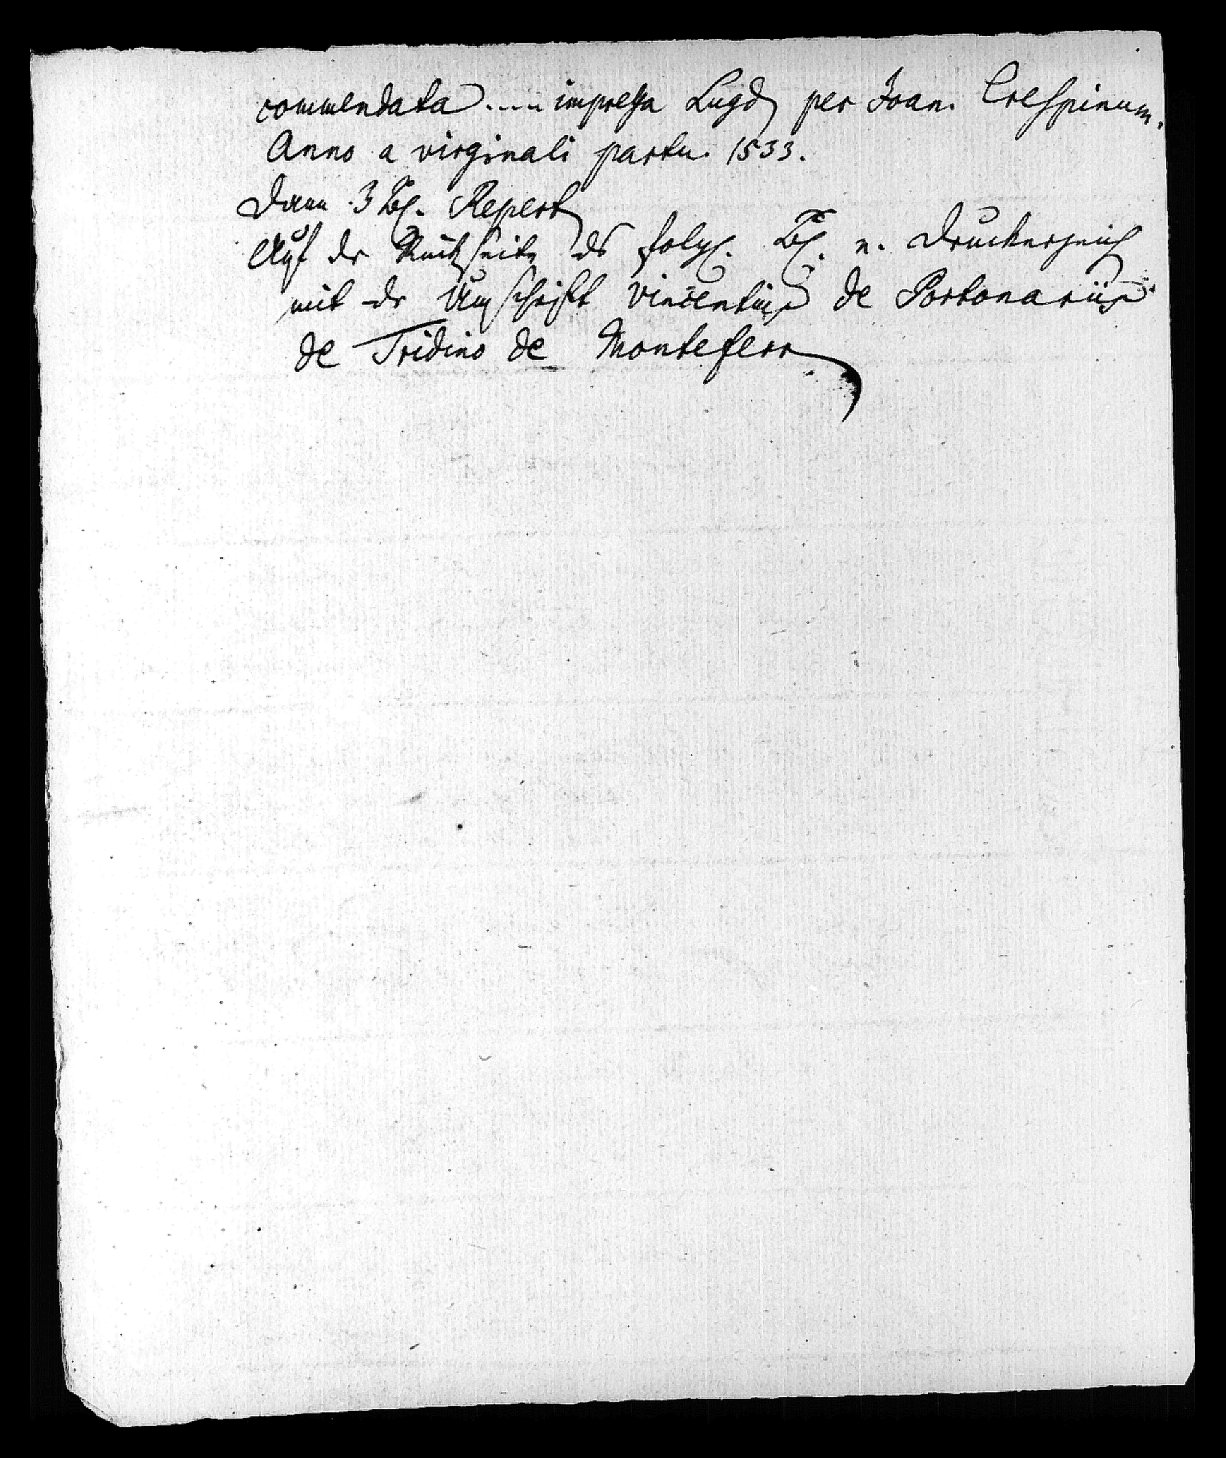 commendata ..... impressa Lugd per Joan. Crespinum.
Anno a virginali partu. 1533.
Dann 3 Bl. Repert
Auf der Rückseite des folg. Bl. n. Druckerzeich
mit der Umschrift Vincentius de Portonariis
de Tridino de Monteferr